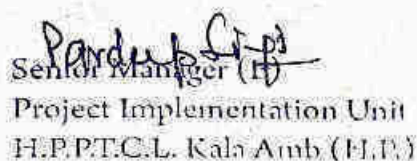 Pardeep Singh
Senior Manager (E)
Project Implementation Unit
H.P.P.T.C.L. Kala Amb (H.P.)